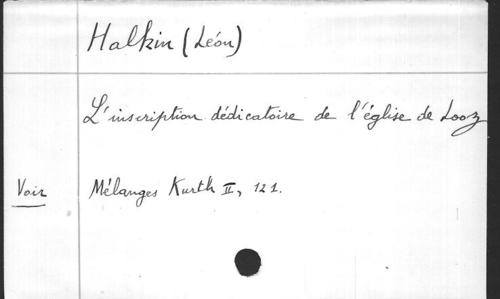 Halkin (Léon)
L'inscription dédicatoire de l'église de Looz
Voir Mélanges Kurth II, 121.